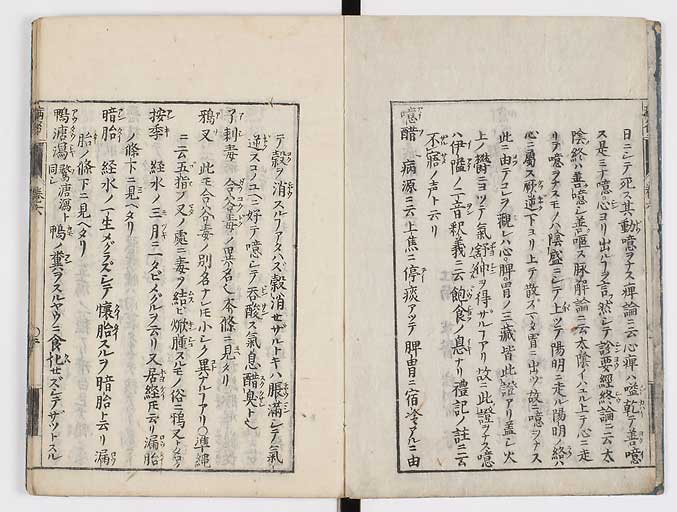 日ニシテ死ス其動噫ヲナス痺論ニ云心痺ハ嗌乾テ善噫
ス是ミナ噫心ヨリ出ルフヲ言然シテ診要經終論ニ云太
陰終ハ善噫シ善嘔ス脉解論ニ云太陰イハユル上テ心ニ走
リテ噫ヲナスモノハ陰盛ニシテ上ツテ陽明ニ走ル陽明ノ絡ハ
心ニ屬ス厥逆下ヨリ上テ散ズ又胃ニ出ツ故ニ噫ヲナス
此ニ由テコレヲ觀レハ心脾胃ノ三藏皆此證アリ蓋シ火
上ノ鬱ニヨツテ氣舒伸ヲ得ザルフアリ故ニ此證ヲナス噫
ハ伊隘ノ二音釈義ニ云飽食ノ息ナリ禮記ノ註ニ云
不寤ノ声ト云リ
噫醋 病源ニ云上焦ニ停痰アツテ脾胃ニ宿冷アルニ由
テ穀ヲ消スルフアタハズ穀消セザルトキハ脹滿シテ氣
逆スコノユヘニ好テ噫シテ呑酸ス氣息醋臭ト
了刺毒 合谷毒ノ異名也本條ニ見タリ
鴉叉 此モ合谷毒ノ別名ナレモ小シク異アルフアリ〇準繩
ニ云五指ヲ叉ノ處ニ毒ヲ結ビ焮腫スルモノ俗ニ鴉叉ト名ク
按季 經水ノ三月ニ一タビメグルヲ云リ又居經モ云リ漏胎
ノ條下ニ見ヘタリ
暗胎 經水ノ一生メグラズシテ懷胎スルヲ暗胎ト云リ漏
胎ノ條下ニ見ヘタリ
鴨溏瀉 鶩溏瀉ト同シ 鴨ノ糞ヲスルヤウニ食化セズシテザットスル